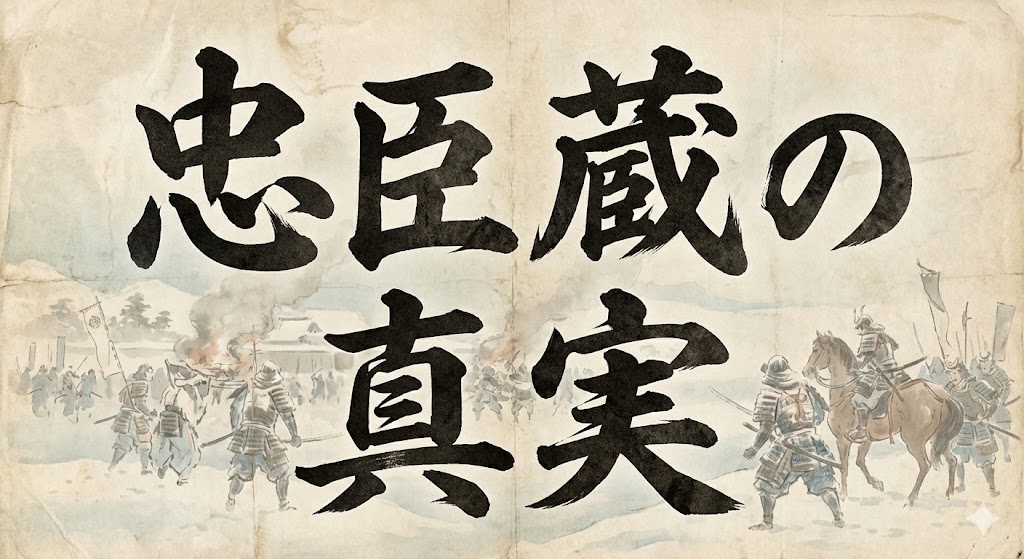 忠臣蔵の
真実